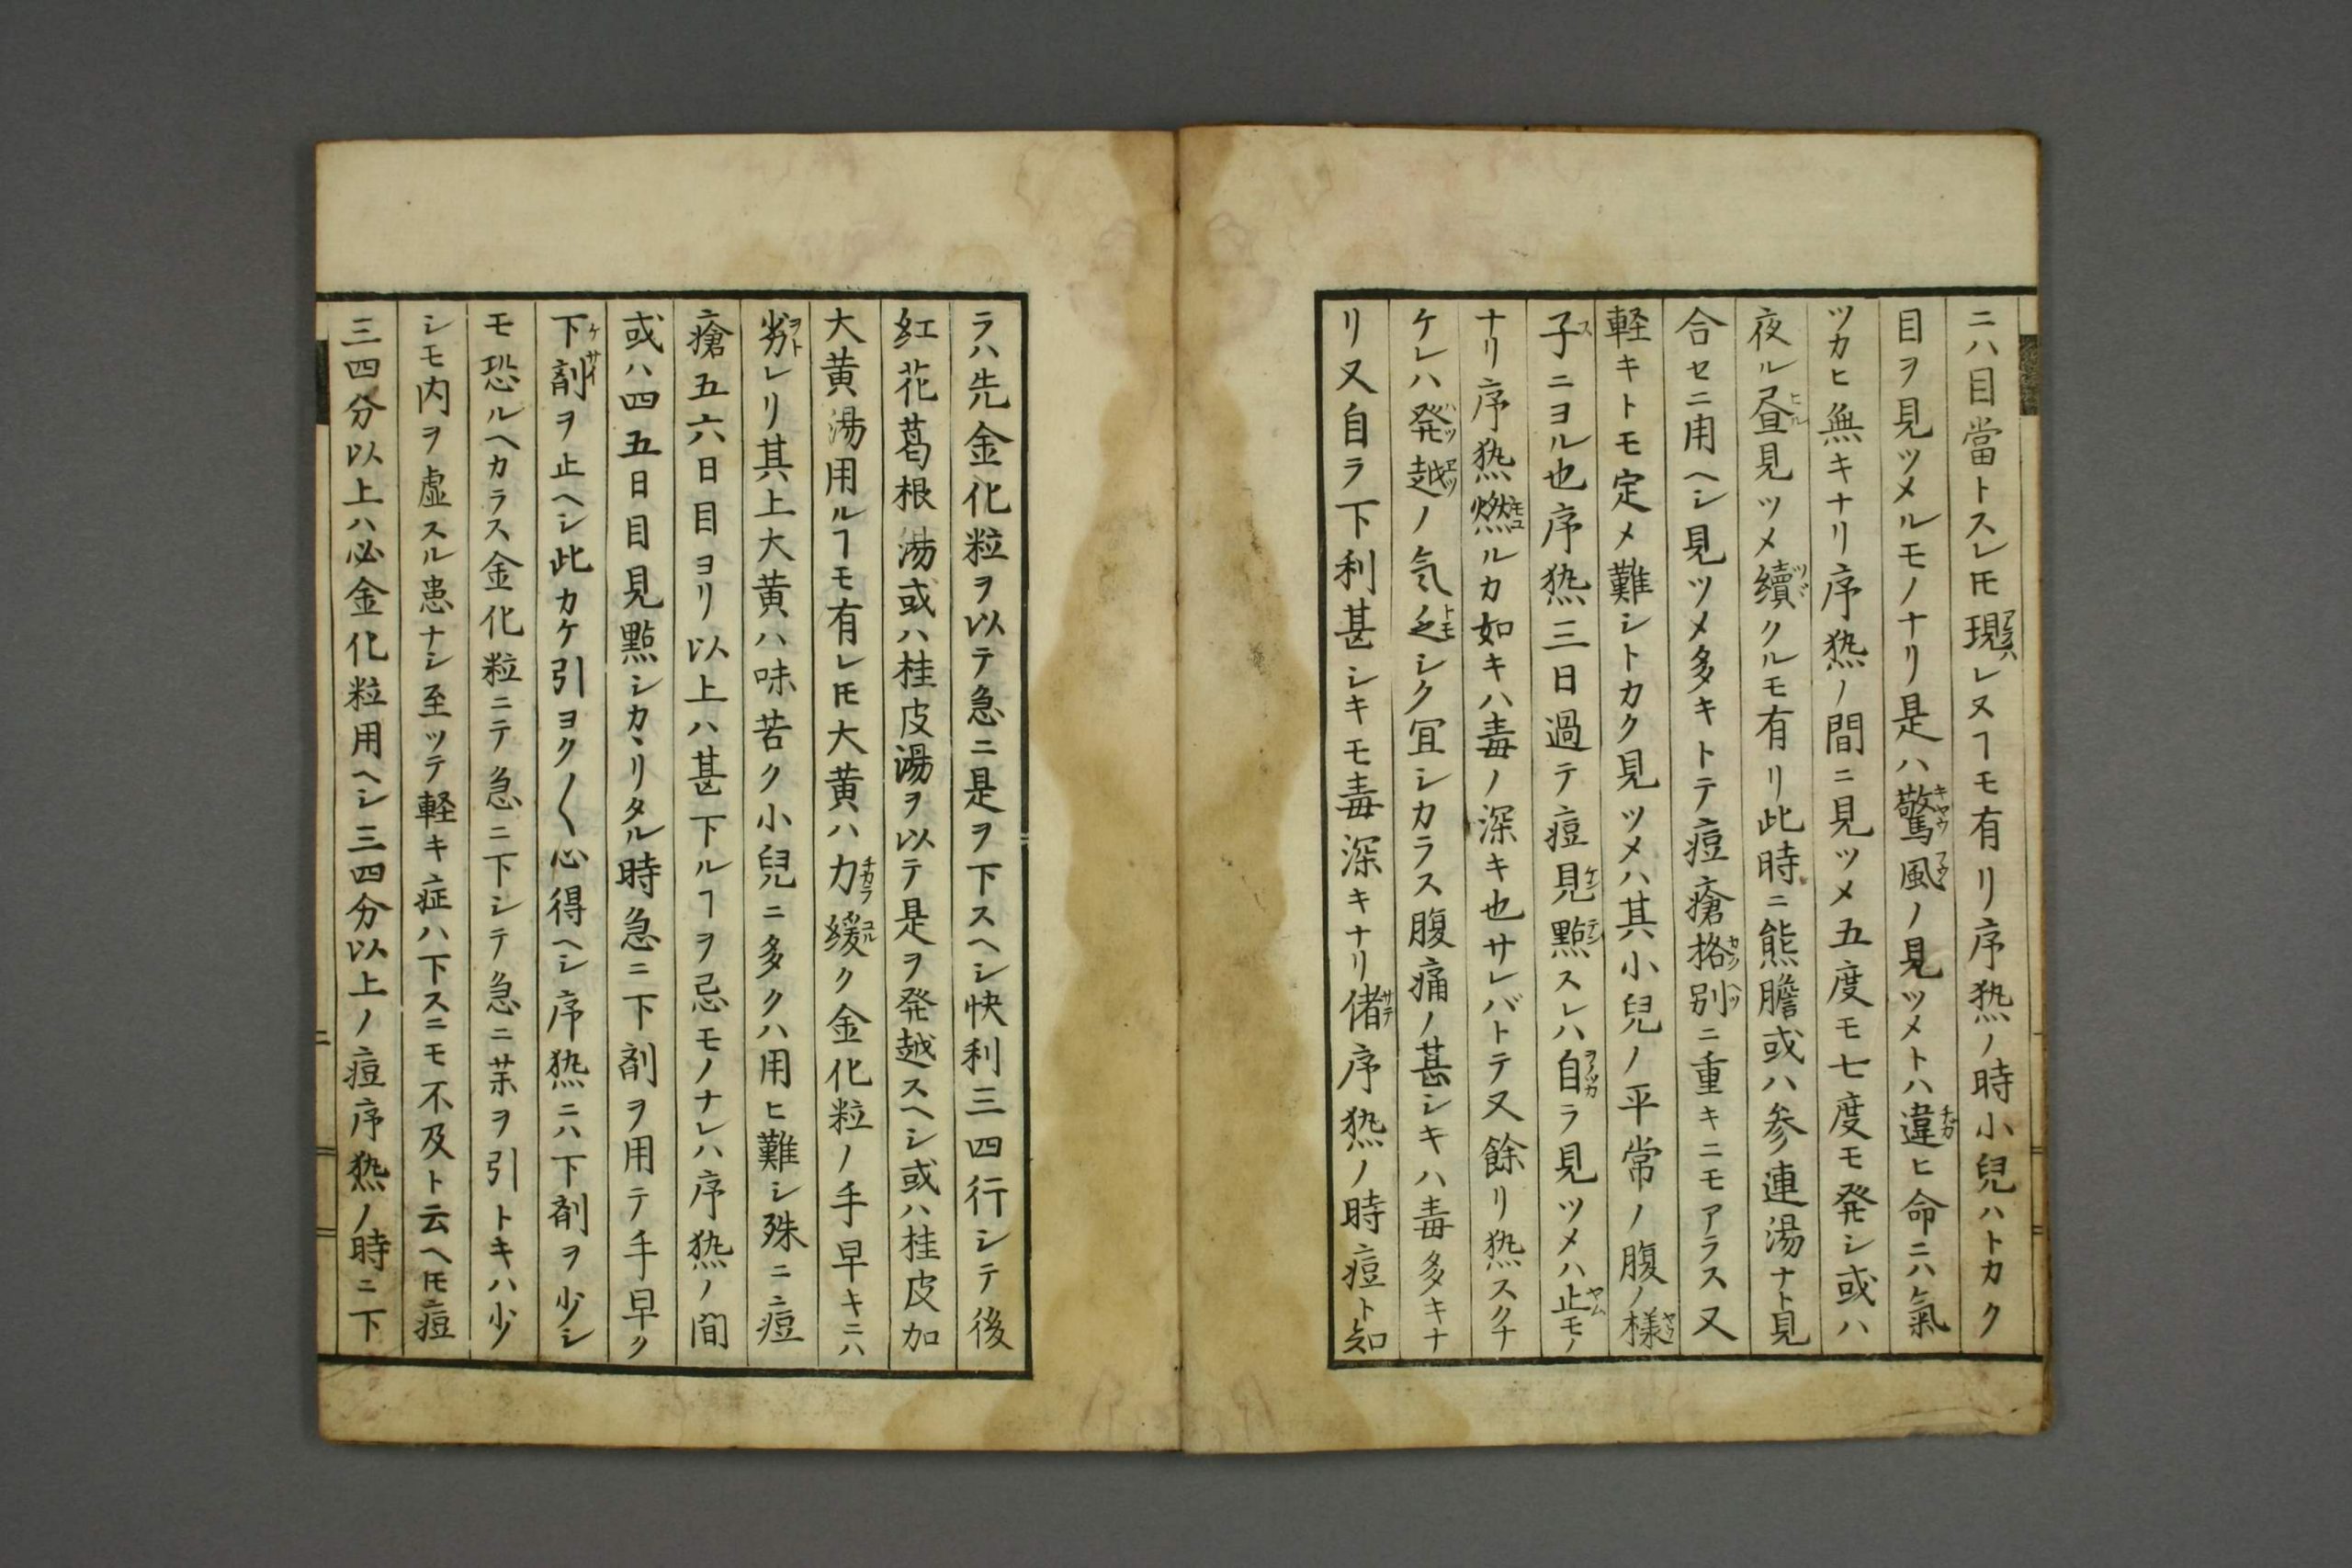 ニハ目當トスレ𪜈現ハレヌヿモ有リ序熱ノ時小兒ハトカク
目ヲ見ツメルモノナリ是ハ驚風ノ見ツメトハ違ヒ命ニハ氣
ツカヒ無キナリ序熱ノ間ニ見ツメ五度モ七度モ発シ或ハ
夜ル昼見ツメ續クルモ有リ此時ニ熊膽或ハ参連湯ナト見
合セニ用ヘシ見ツメ多キトテ痘瘡格別ニ重キニモアラス又
軽キトモ定メ難シトカク見ツメハ其小兒ノ平常ノ腹ノ様
子ニヨル也序熱三日過テ痘見點スレハ自ラ見ツメハ止モノ
ナリ序熱燃ルカ如キハ毒ノ深キ也サレバトテ又餘リ熱スクナ
ケレハ発越ノ気乏シク冝シカラス腹痛ノ甚シキハ毒多キナ
リ又自ラ下利甚シキモ毒深キナリ偖序熱ノ時痘ト知
ラハ先金化粒ヲ以テ急ニ是ヲ下スヘシ快利三四行シテ後
紅花葛根湯或ハ桂皮湯ヲ以テ是ヲ発越スヘシ或ハ桂皮加
大黄湯用ルヿモ有レ𪜈大黄ハ力緩ク金化粒ノ手早キニハ
劣レリ其上大黄ハ味苦ク小兒ニ多クハ用ヒ難シ殊ニ痘
瘡五六日目ヨリ以上ハ甚下ルヿヲ忌モノナレハ序熱ノ間
或ハ四五日目見點シカヽリタル時急ニ下剤ヲ用テ手早ク
下剤ヲ止ヘシ此カケ引ヨク〳〵心得ヘシ序熱ニハ下剤ヲ少シ
モ恐ルヘカラス金化粒ニテ急ニ下シテ急ニ茉ヲ引トキハ少
シモ内ヲ虚スル患ナシ至ッテ軽キ症ハ下スニモ不及ト云ヘ𪜈痘
三四分以上ハ必金化粒用ヘシ三四分以上ノ痘序熱ノ時ニ下